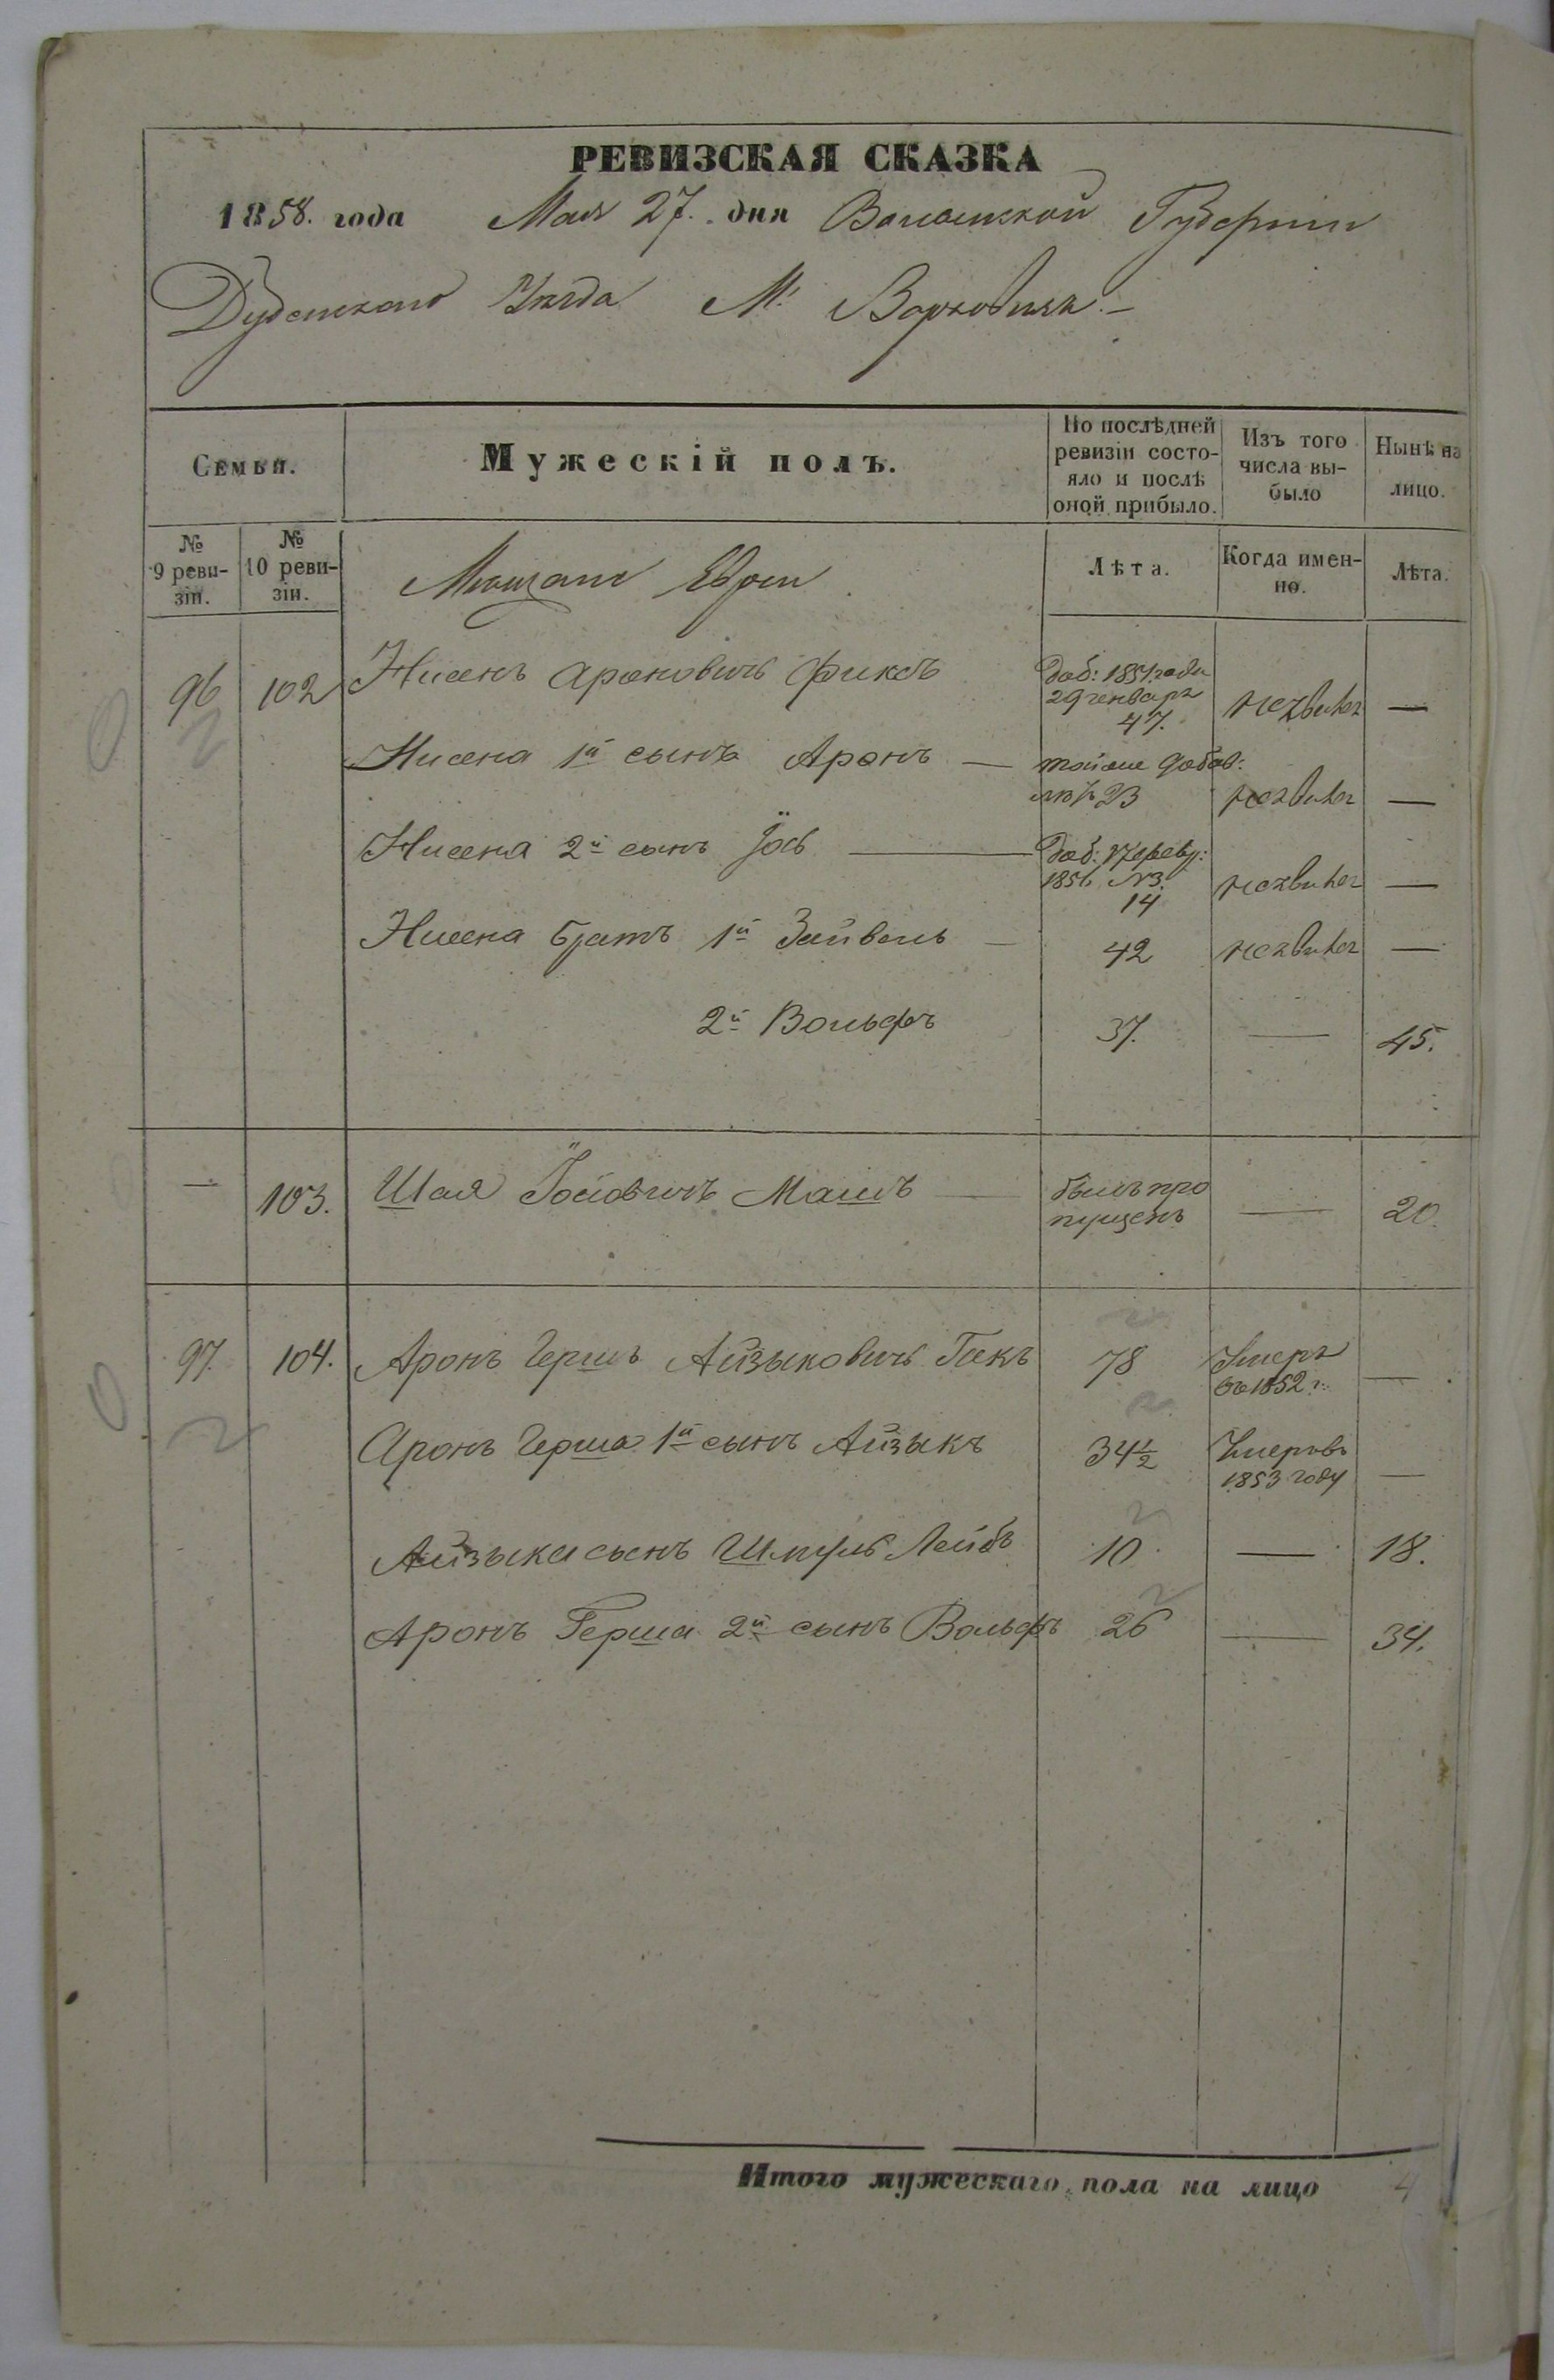 РЕВИЗСКАЯ СКАЗКА
1858. года Мая 27. дня Волынской Губерніи
Дубенскаго Уѣзда М. Варковичь.—
Семьи.
Мужескій полъ.
По послѣдней
ревизіи состо-
яло и послѣ
оной прибыло.
Изъ того
числа вы-
было
Нынѣ на
лицо.
№
9 реви-
зіи.
№
10 реви-
зіи.
Мѣщане Евреи
Лѣта.
Когда имен-
но.
Лѣта.
96 102 Нисенъ Ароновичь Фиксъ
Доб: 1851 года
29 генваря
47. —
Нисена 1й сынъ Аронъ — тойже добав:
23 —
Нисена 2й сынъ Іось —
Доб: 17 февр:
1851 N3.
14 —
Нисена братъ 1й Зайвель — 42 —
2й Вольфъ 37. — 45.
— 103. Шая Іосіовичъ Машъ —
былъ про
пущенъ — 20.
97. 104. Аронъ Гершъ Айзыковичь Гакъ 78 Умеръ
въ 1852 г: —
Аронъ Герша 1й сынъ Айзыкъ 34½ Умеръ въ
1853 году —
Айзыка сынъ Шмуль Лейбъ 10. — 18.
Аронъ Герша 2й сынъ Вольфъ 26 — 34.
Итого мужескаго пола на лицо 4